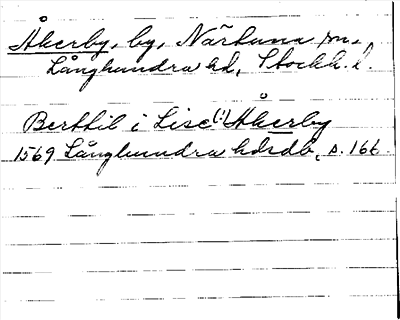 Åkerby, by, Närtuna sn,
Långhundra hd, Stockh. l.
Berthil i Lise(:) Åkerby
1569 Långhundra hdsdb, s. 166.